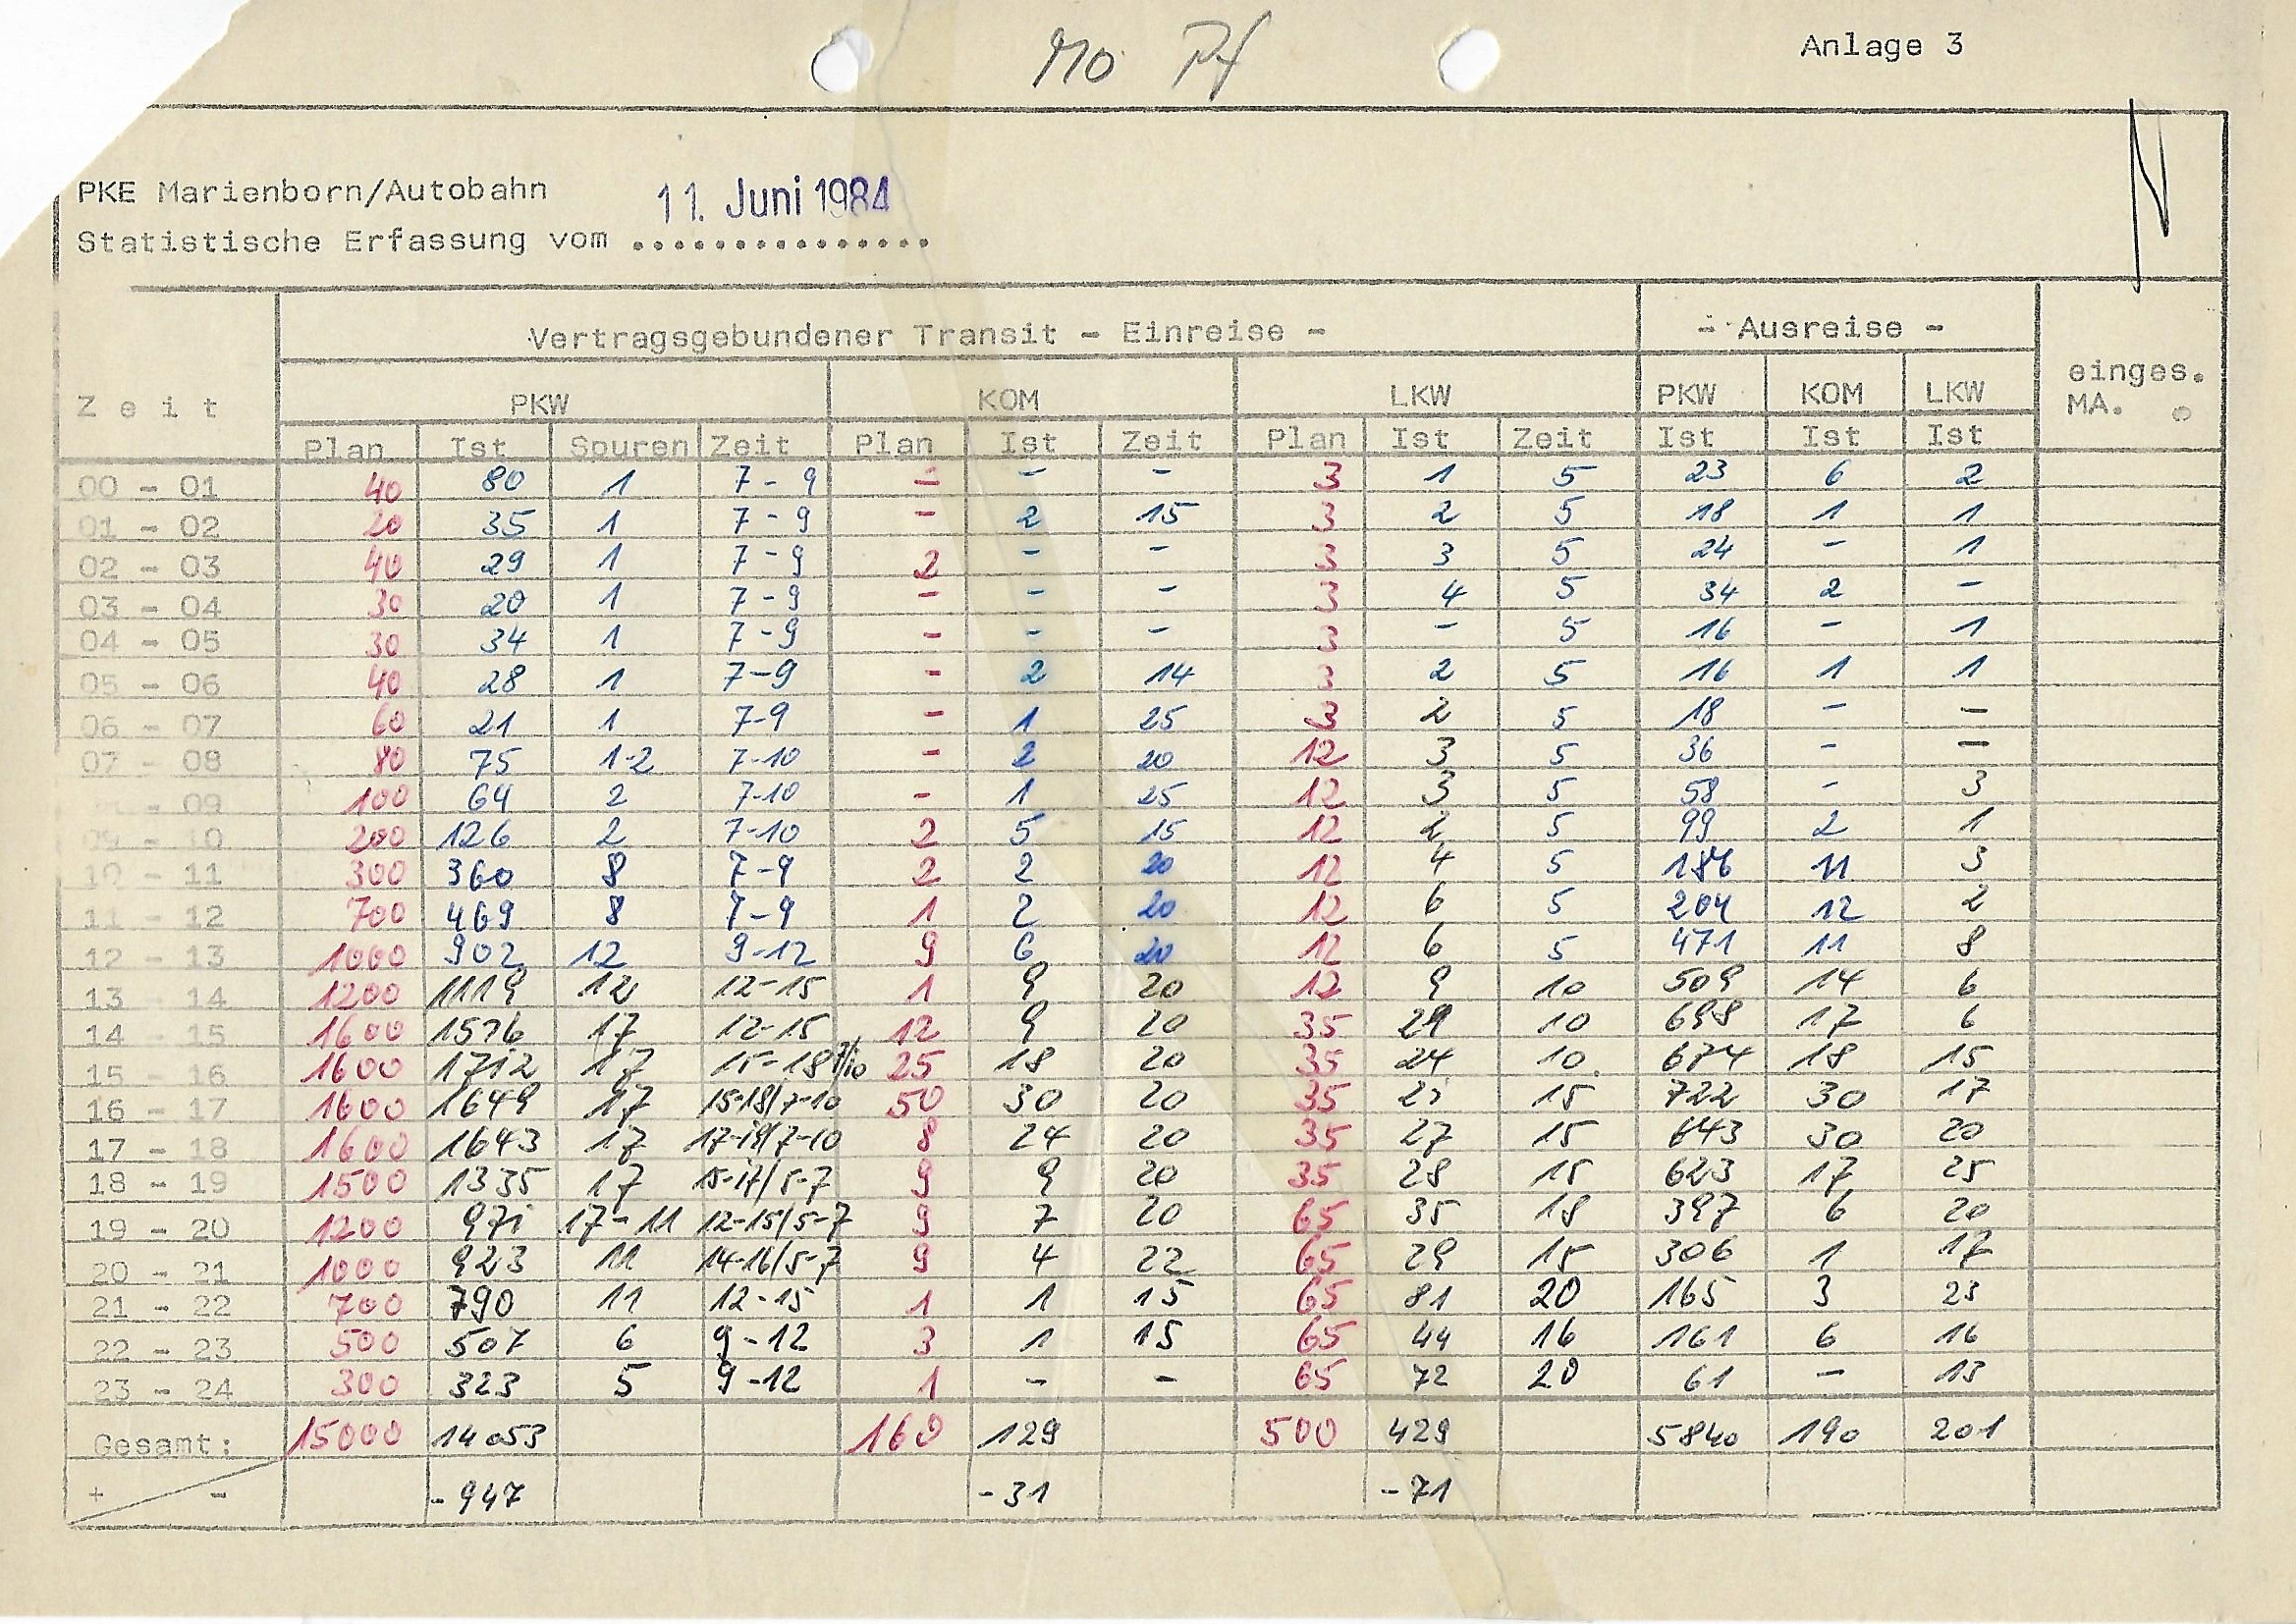 Mo Pf
Anlage 3
PKE Marienborn/Autobahn 11. Juni 1984
Statistische Erfassung vom ...............
Vertragsgebundener Transit - Einreise - - Ausreise -
Zeit PKW KOM LKW PKW KOM LKW einges. MA.
Plan Ist Spuren Zeit Plan Ist Zeit Plan Ist Zeit Ist Ist Ist
00 - 01 40 80 1 7 - 9 - - - 3 1 5 23 6 2
01 - 02 20 35 1 7 - 9 - 2 15 3 2 5 18 1 1
02 - 03 40 29 1 7 - 9 2 - - 3 3 5 24 - 1
03 - 04 30 20 1 7 - 9 - - - 3 4 5 34 2 -
04 - 05 30 34 1 7 - 9 - - - 3 - 5 16 - 1
05 - 06 40 28 1 7-9 - 2 14 3 2 5 16 1 1
06 - 07 60 21 1 7-9 - 1 25 3 2 5 18 - -
07 - 08 80 75 1-2 7-10 - 2 20 12 3 5 36 - -
- 09 100 64 2 7-10 - 1 25 12 3 5 58 - 3
09 - 10 200 126 2 7-10 2 5 15 12 2 5 99 2 1
10 - 11 300 360 8 7-9 2 2 20 12 4 5 11 3
11 - 12 700 469 8 7-9 1 2 20 12 6 5 204 12 2
12 - 13 1000 902 12 9-12 9 6 20 12 6 5 471 11 8
13 - 14 1200 1119 12 12-15 1 9 20 12 9 10 509 14 6
14 - 15 1600 1576 17 12-15 12 9 20 35 10 698 17 6
15 - 16 1600 1712 17 15-18 7/10 25 18 20 35 24 10 674 18 15
16 - 17 1600 1649 17 15-18/7-10 50 30 20 35 15 722 30 17
17 - 18 1600 1643 17 17-19/7-10 8 24 20 35 27 15 643 30 20
18 - 19 1500 1335 17 15-17/5-7 9 9 20 35 28 15 623 17 25
19 - 20 1200 971 17-11 12-15/5-7 9 7 20 65 35 18 397 6 20
20 - 21 1000 923 11 14-16/5-7 9 4 22 65 29 15 306 1 17
21 - 22 700 790 11 12-15 1 1 15 65 81 20 165 3 23
22 - 23 500 507 6 9-12 3 1 15 65 44 16 161 6 16
23 - 24 300 323 5 9-12 1 - - 65 72 20 61 - 13
Gesamt: 15000 14053 160 129 500 429 5840 190 201
+ - -947 -31 -71